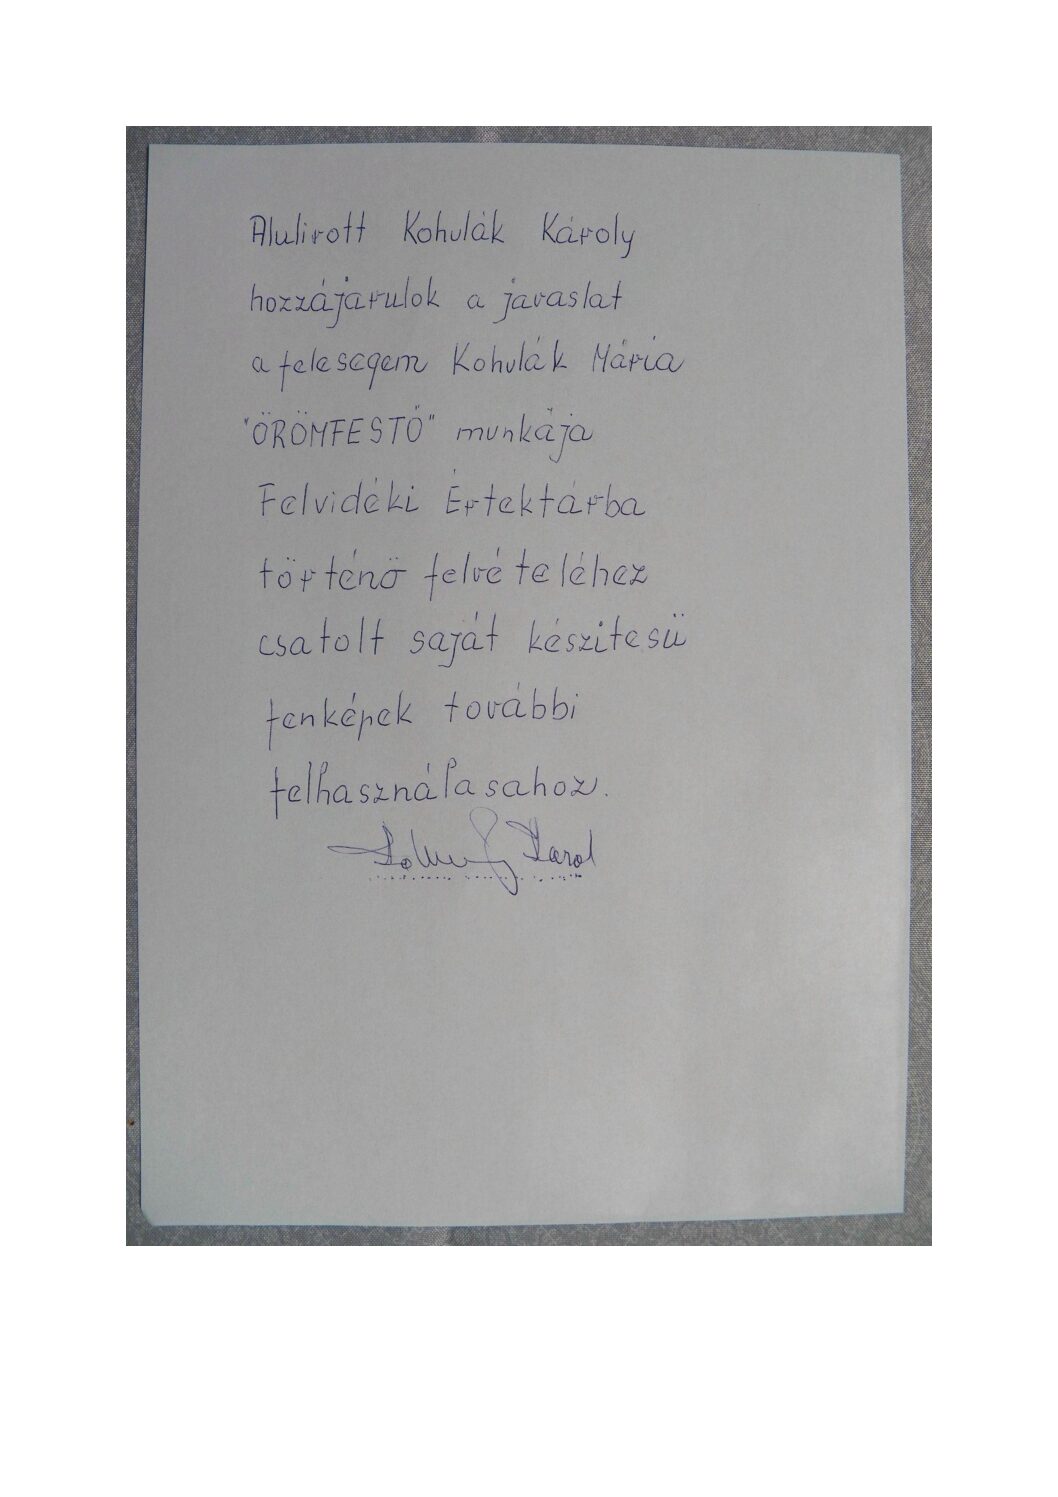 Alulirott Kohulák Károly
hozzájarulok a javaslat
a felesegem Kohulák Mária
"ÖRÖMFESTŐ" munkája
Felvidéki Értektárba
történö felvételéhez
csatolt saját készitesü
fenképek további
felhasználasahoz.
Karol